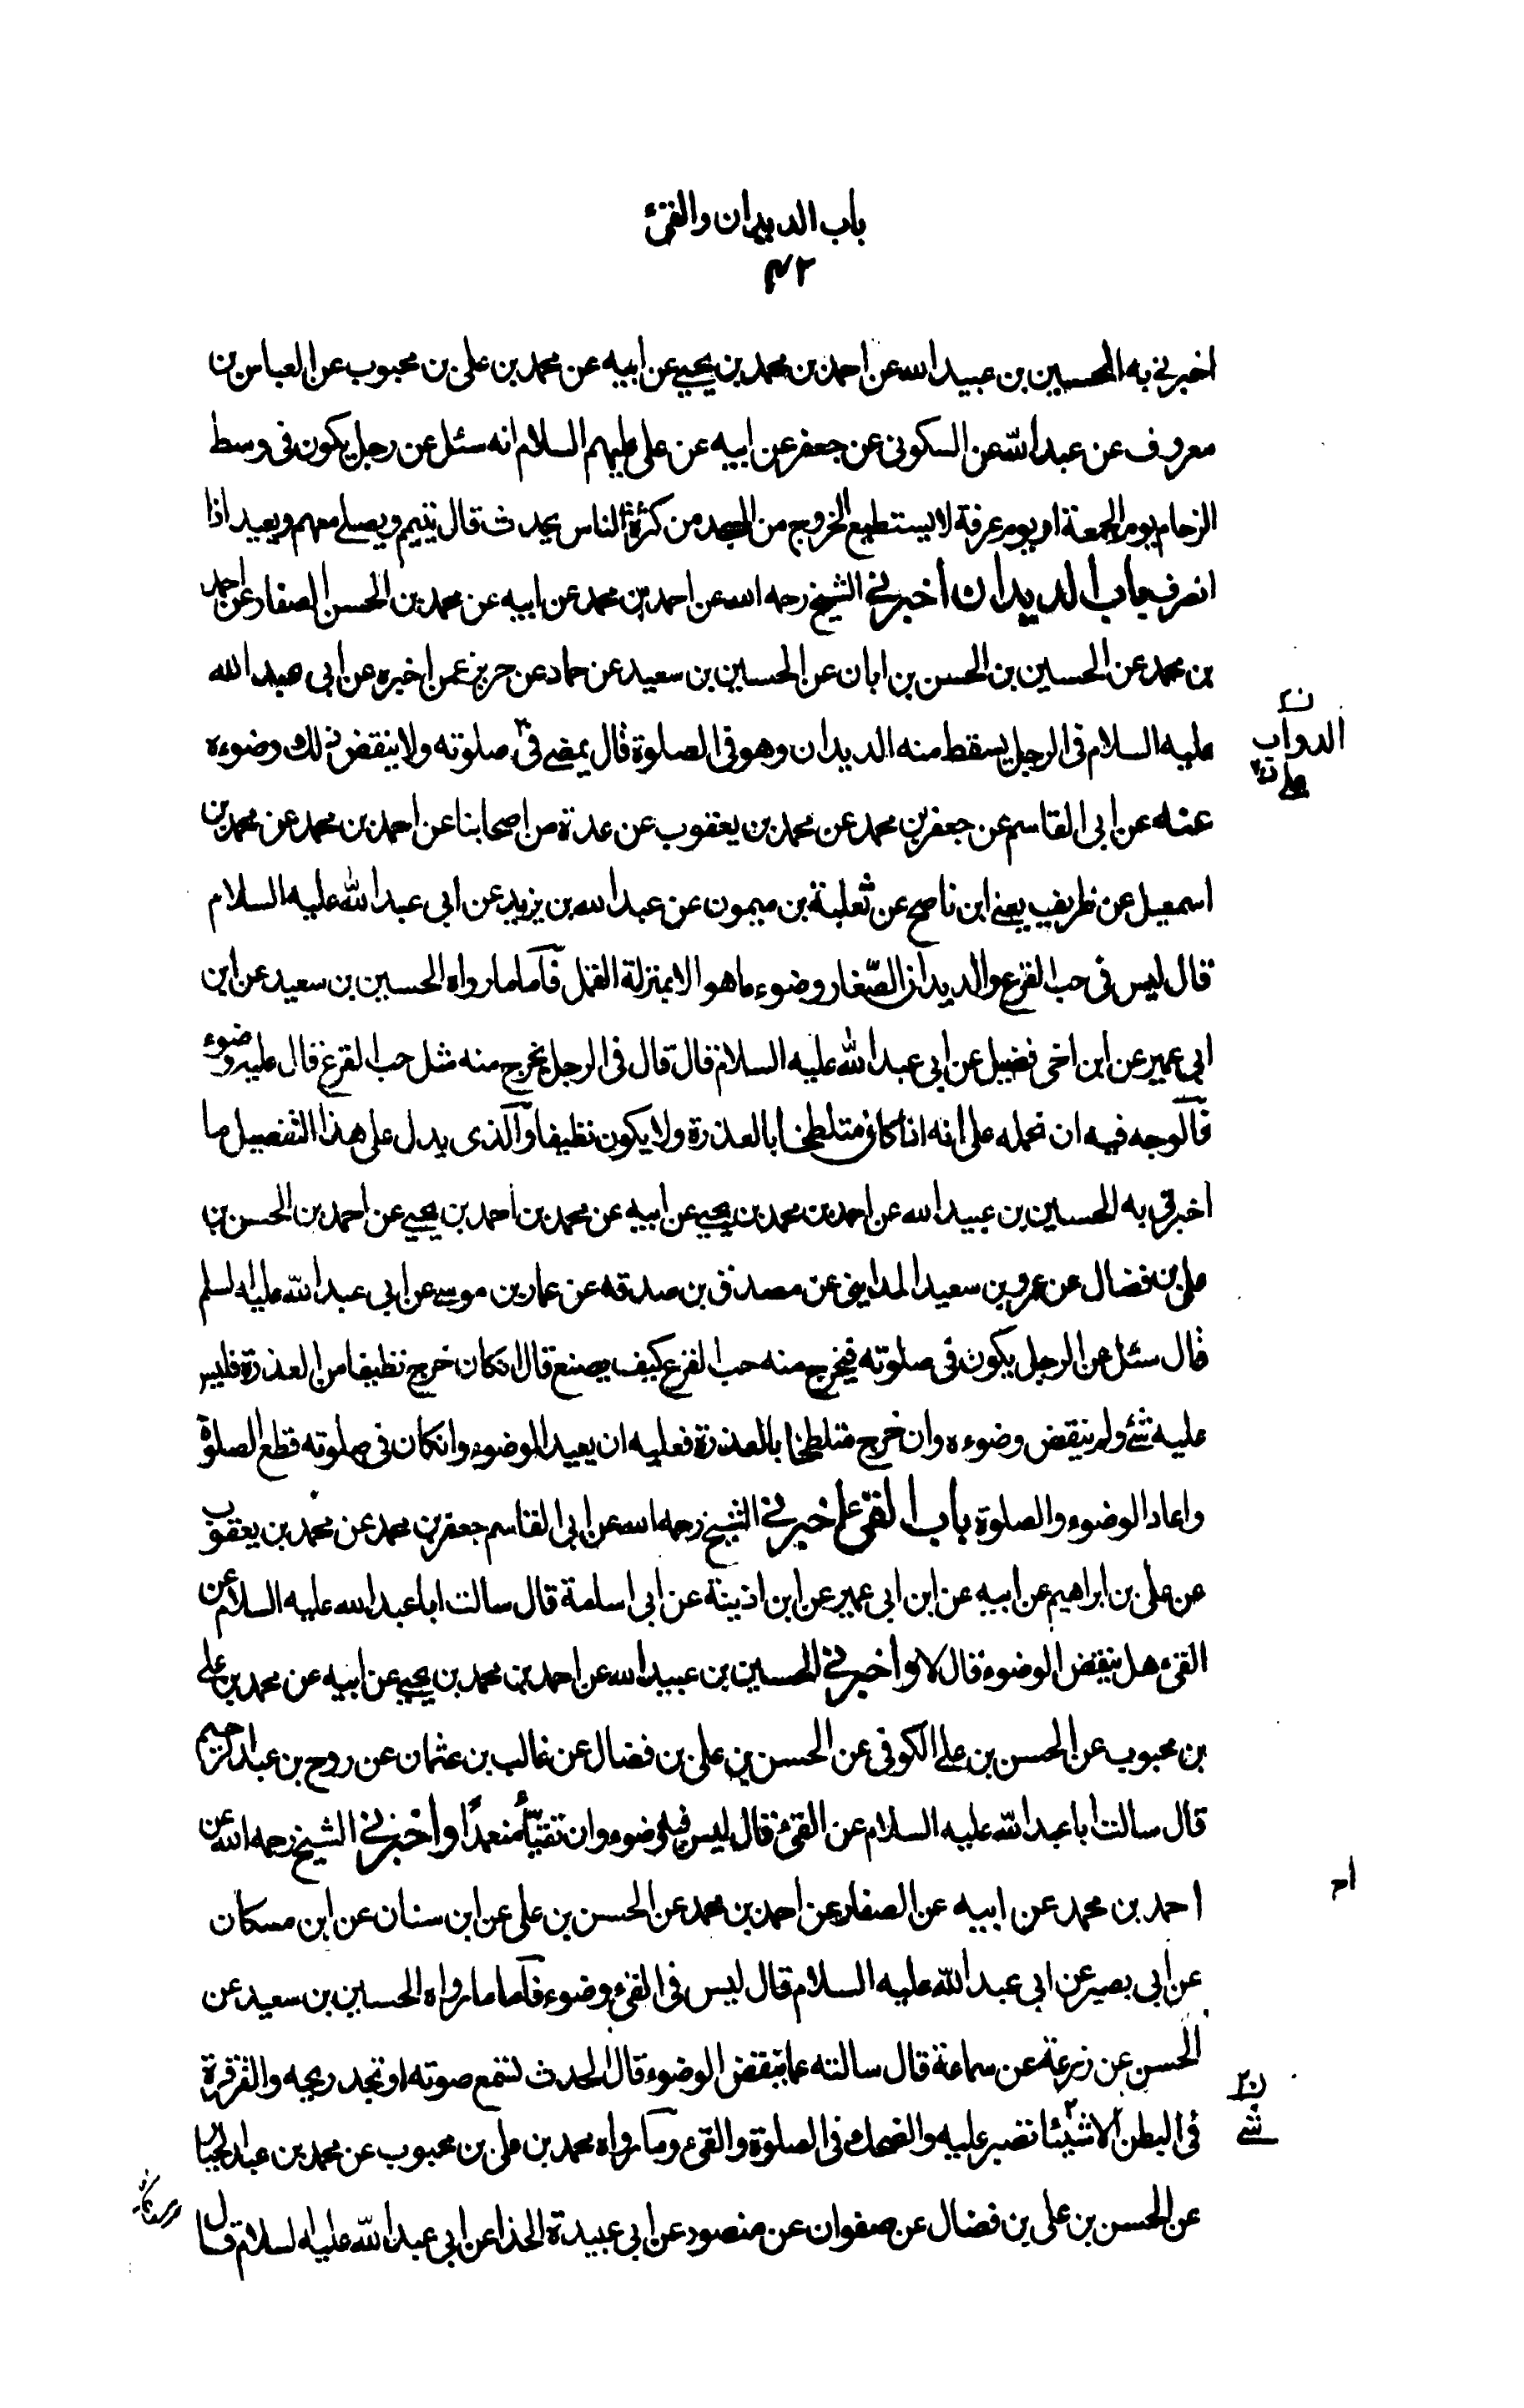 باب الديدان والقئ
٤٢
اخبرني به الحسين بن عبيد الله عن احمد بن محمد بن يحيى عن ابيه عن محمد بن علي بن محبوب عن العباس بن
معروف عن عبد الله عن السكوني عن جعفر عن ابيه عن علي عليهم السلام انه سئل عن رجل يكون في وسط
الزحام يوم الجمعة او يوم عرفة لا يستطيع الخروج من المسجد من كثرة الناس يحدث قال يتيمم ويصلي معهم ويعيد اذا
انصرف باب الديدان اخبرني الشيخ رحمه الله عن احمد بن محمد عن ابيه عن محمد بن الحسن الصفار عن احمد
بن محمد عن الحسين بن الحسن بن ابان عن الحسين بن سعيد عن حماد عن حريز عمن اخبره عن ابي عبد الله
عليه السلام في الرجل يسقط منه الديدان وهو في الصلوة قال يمضي في صلوته ولا ينقض ذلك وضوءه
الدواب
على
عنه عن ابي القاسم عن جعفر بن محمد عن محمد بن يعقوب عن عدة من اصحابنا عن احمد بن محمد عن محمد بن
اسمعيل عن ظريف يعني ابن ناصح عن ثعلبة بن ميمون عن عبد الله بن يزيد عن ابي عبد الله عليه السلام
قال ليس في حب القرع والديدان الصّغار وضوء ما هو الا بمنزلة القمل فأما ما رواه الحسين بن سعيد عن ابن
ابي عمير عن ابن اخي فضيل عن ابي عبد الله عليه السلام قال قال في الرجل يخرج منه مثل حب القرع قال عليه وضوء
فالوجه فيه ان نحمله على انه اذا كان متلطخا بالعذرة ولا يكون نظيفا والذي يدل على هذا التفصيل ما
اخبرني به الحسين بن عبيد الله عن احمد بن محمد بن يحيى عن ابيه عن محمد بن احمد بن يحيى عن احمد بن الحسن بن
علي بن فضال عن عمرو بن سعيد المدايني عن مصدق بن صدقه عن عمار بن موسى عن ابي عبد الله عليه السلم
قال سئل عن الرجل يكون في صلوته فيخرج منه حب القرع كيف يصنع قال ان كان خرج نظيفا من العذرة فليس
عليه شئ ولم ينقض وضوءه وان خرج متلطخا بالعذرة فعليه ان يعيد الوضوء وان كان في صلوته قطع الصلوة
واعاد الوضوء والصلوة باب القئ اخبرني الشيخ رحمه الله عن ابي القاسم جعفر بن محمد عن محمد بن يعقوب
عن علي بن ابراهيم عن ابيه عن ابن ابي عمير عن ابن اذينة عن ابي اسامة قال سالت ابا عبد الله عليه السلام عن
القئ هل ينقض الوضوء قال لا واخبرني الحسين بن عبيد الله عن احمد بن محمد بن يحيى عن ابيه عن محمد بن علي
بن محبوب عن الحسن بن علي الكوفي عن الحسن بن علي بن فضال عن غالب بن عثمان عن روح بن عبد الرحيم
قال سالت ابا عبد الله عليه السلام عن القئ قال ليس فيه وضوء وان تقيّأ متعمدًا واخبرني الشيخ رحمه الله عن
احمد بن محمد عن ابيه عن الصفار عن احمد بن محمد عن الحسن بن علي عن ابن سنان عن ابن مسكان
عن ابي بصير عن ابي عبد الله عليه السلام قال ليس في القئ وضوء فأما ما رواه الحسين بن سعيد عن
الحسن عن زرعة عن سماعة قال سالته عما ينقض الوضوء قال الحدث تسمع صوته او تجد ريحه والقرقرة
في البطن الا شيئا تصبر عليه والضحك في الصلوة والقئ وما رواه محمد بن علي بن محبوب عن محمد بن عبد الجبار
عن الحسن بن علي بن فضال عن صفوان عن منصور عن ابي عبيدة الحذا عن ابي عبد الله عليه السلام قال